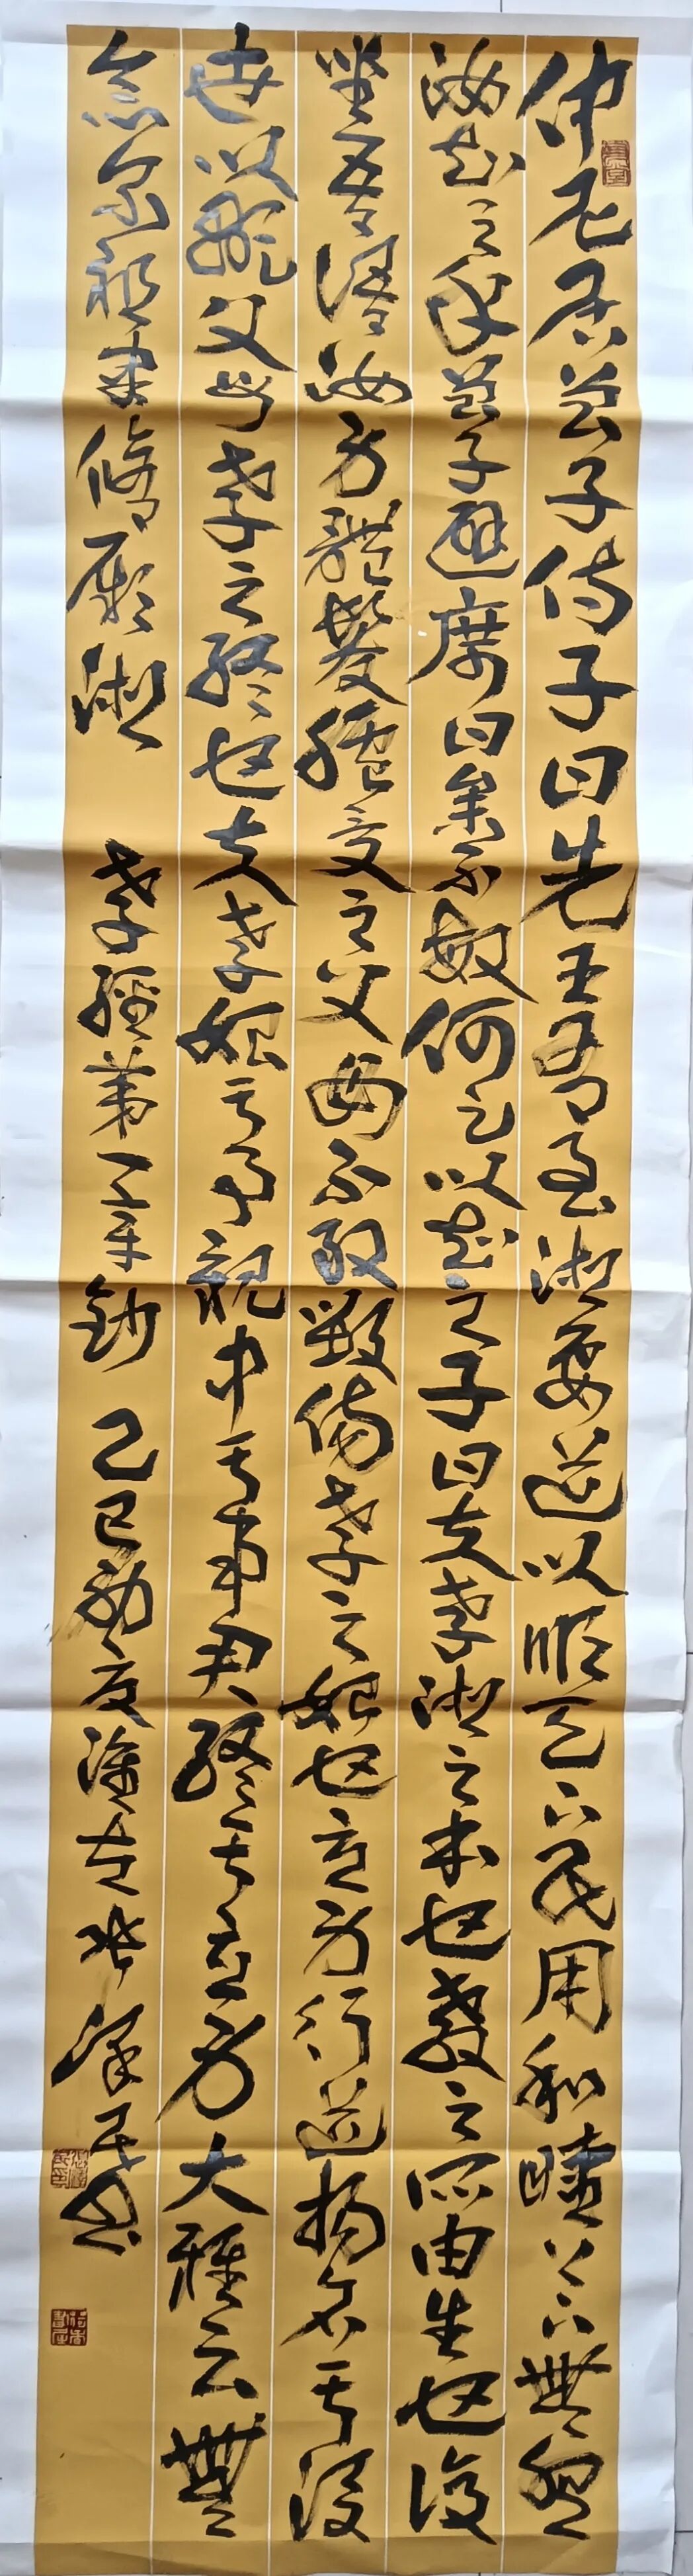 仲尼居曾子侍子曰先王有至德要道以順天下民用和睦上下無怨
汝知之乎曾子避席曰參不敏何足以知之子曰夫孝德之本也教之所由生也復
坐吾語汝身體髮膚受之父母不敢毀傷孝之始也立身行道揚名于後
世以顯父母孝之終也夫孝始于事親中于事君終于立身大雅云無
念爾祖聿脩厥德 孝經第一章鈔 乙巳初夏